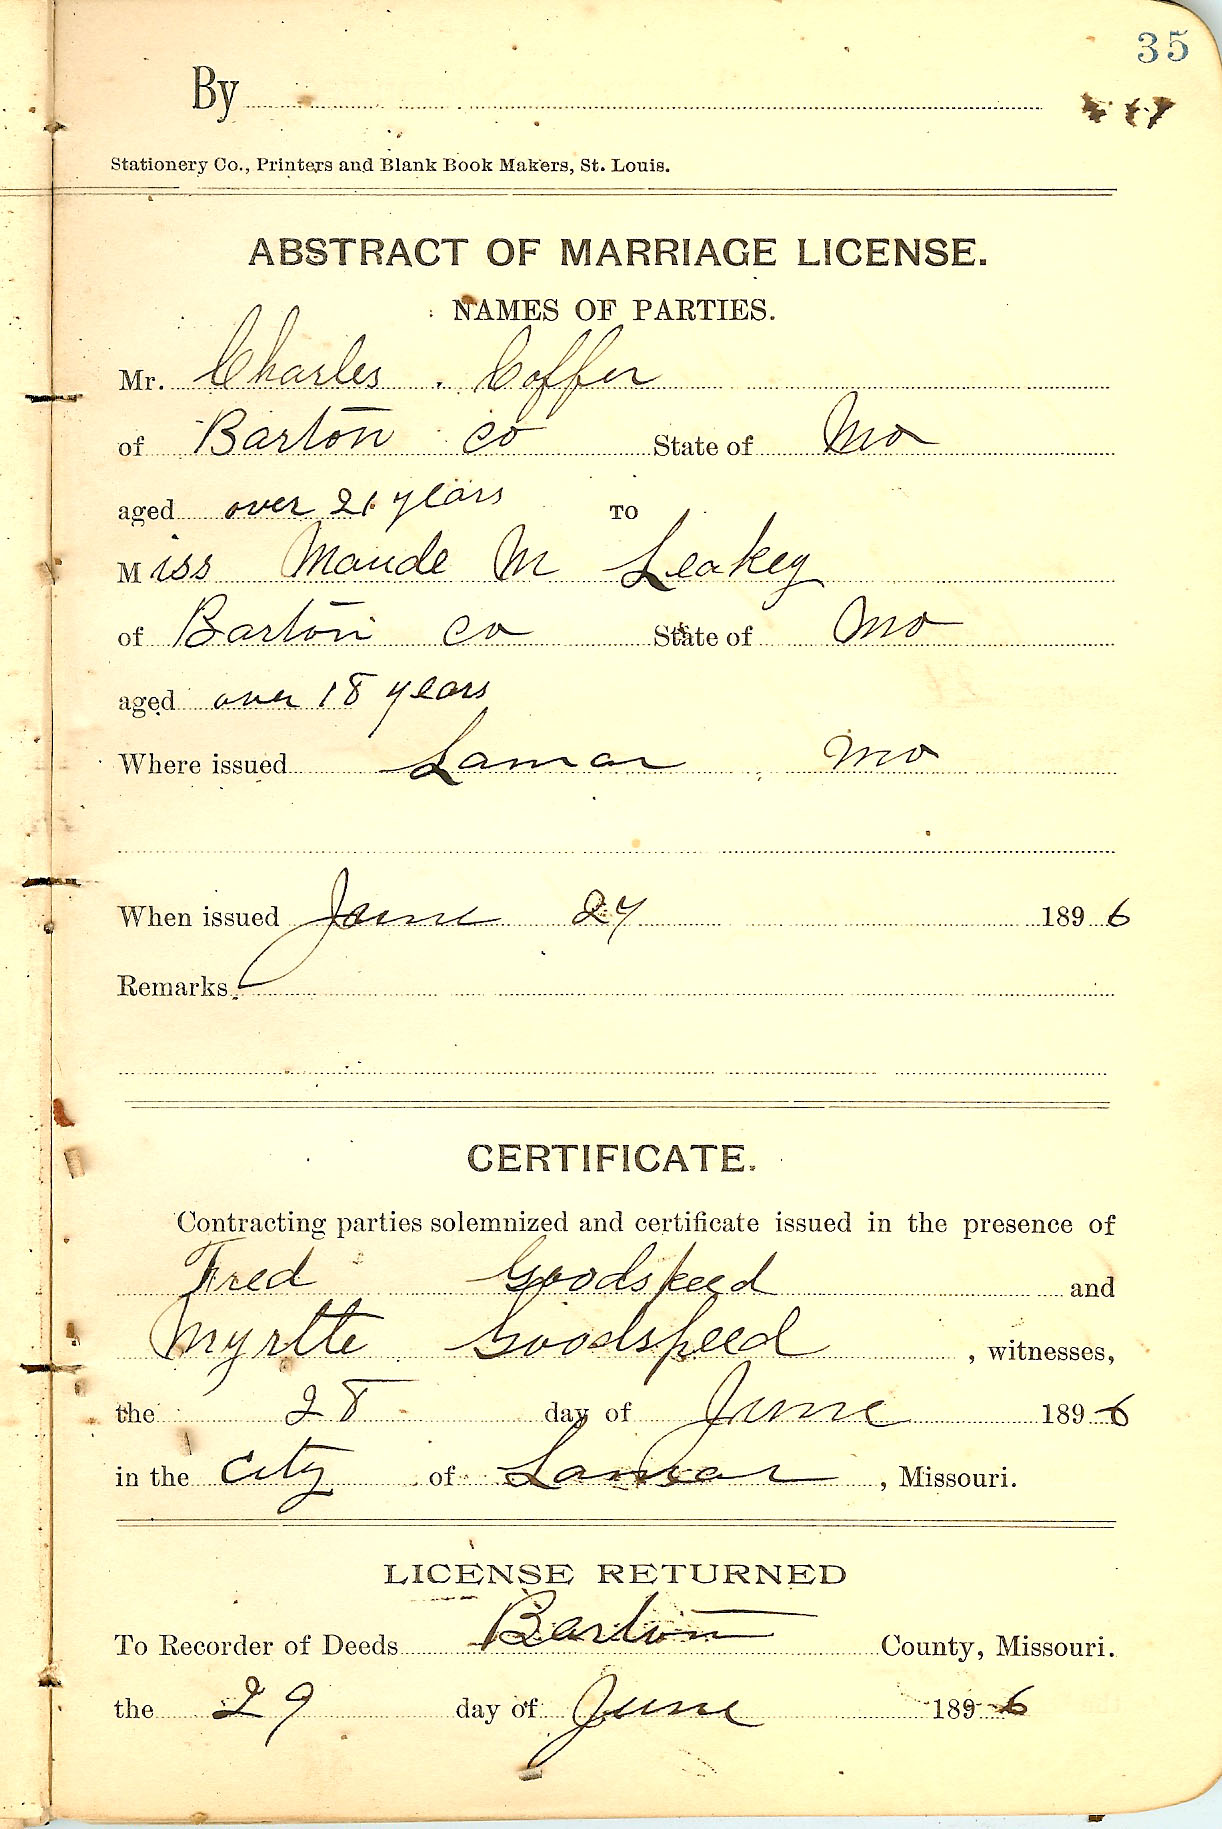 35
By
Stationery Co., Printers and Blank Book Makers, St. Louis.
ABSTRACT OF MARRIAGE LICENSE.
NAMES OF PARTIES.
Mr. Charles . Coffer
of Barton co State of Mo
aged over 21 years TO
Miss Maude M Leakey
of Barton co State of Mo
aged over 18 years
Where issued Lamar Mo
When issued June 27 1896
Remarks.
CERTIFICATE.
Contracting parties solemnized and certificate issued in the presence of
Fred Goodspeed and
Myrtte Goodspeed , witnesses,
the 28 day of June 1896
in the city of Lamar , Missouri.
LICENSE RETURNED
To Recorder of Deeds Barton County, Missouri.
the 29 day of June 1896